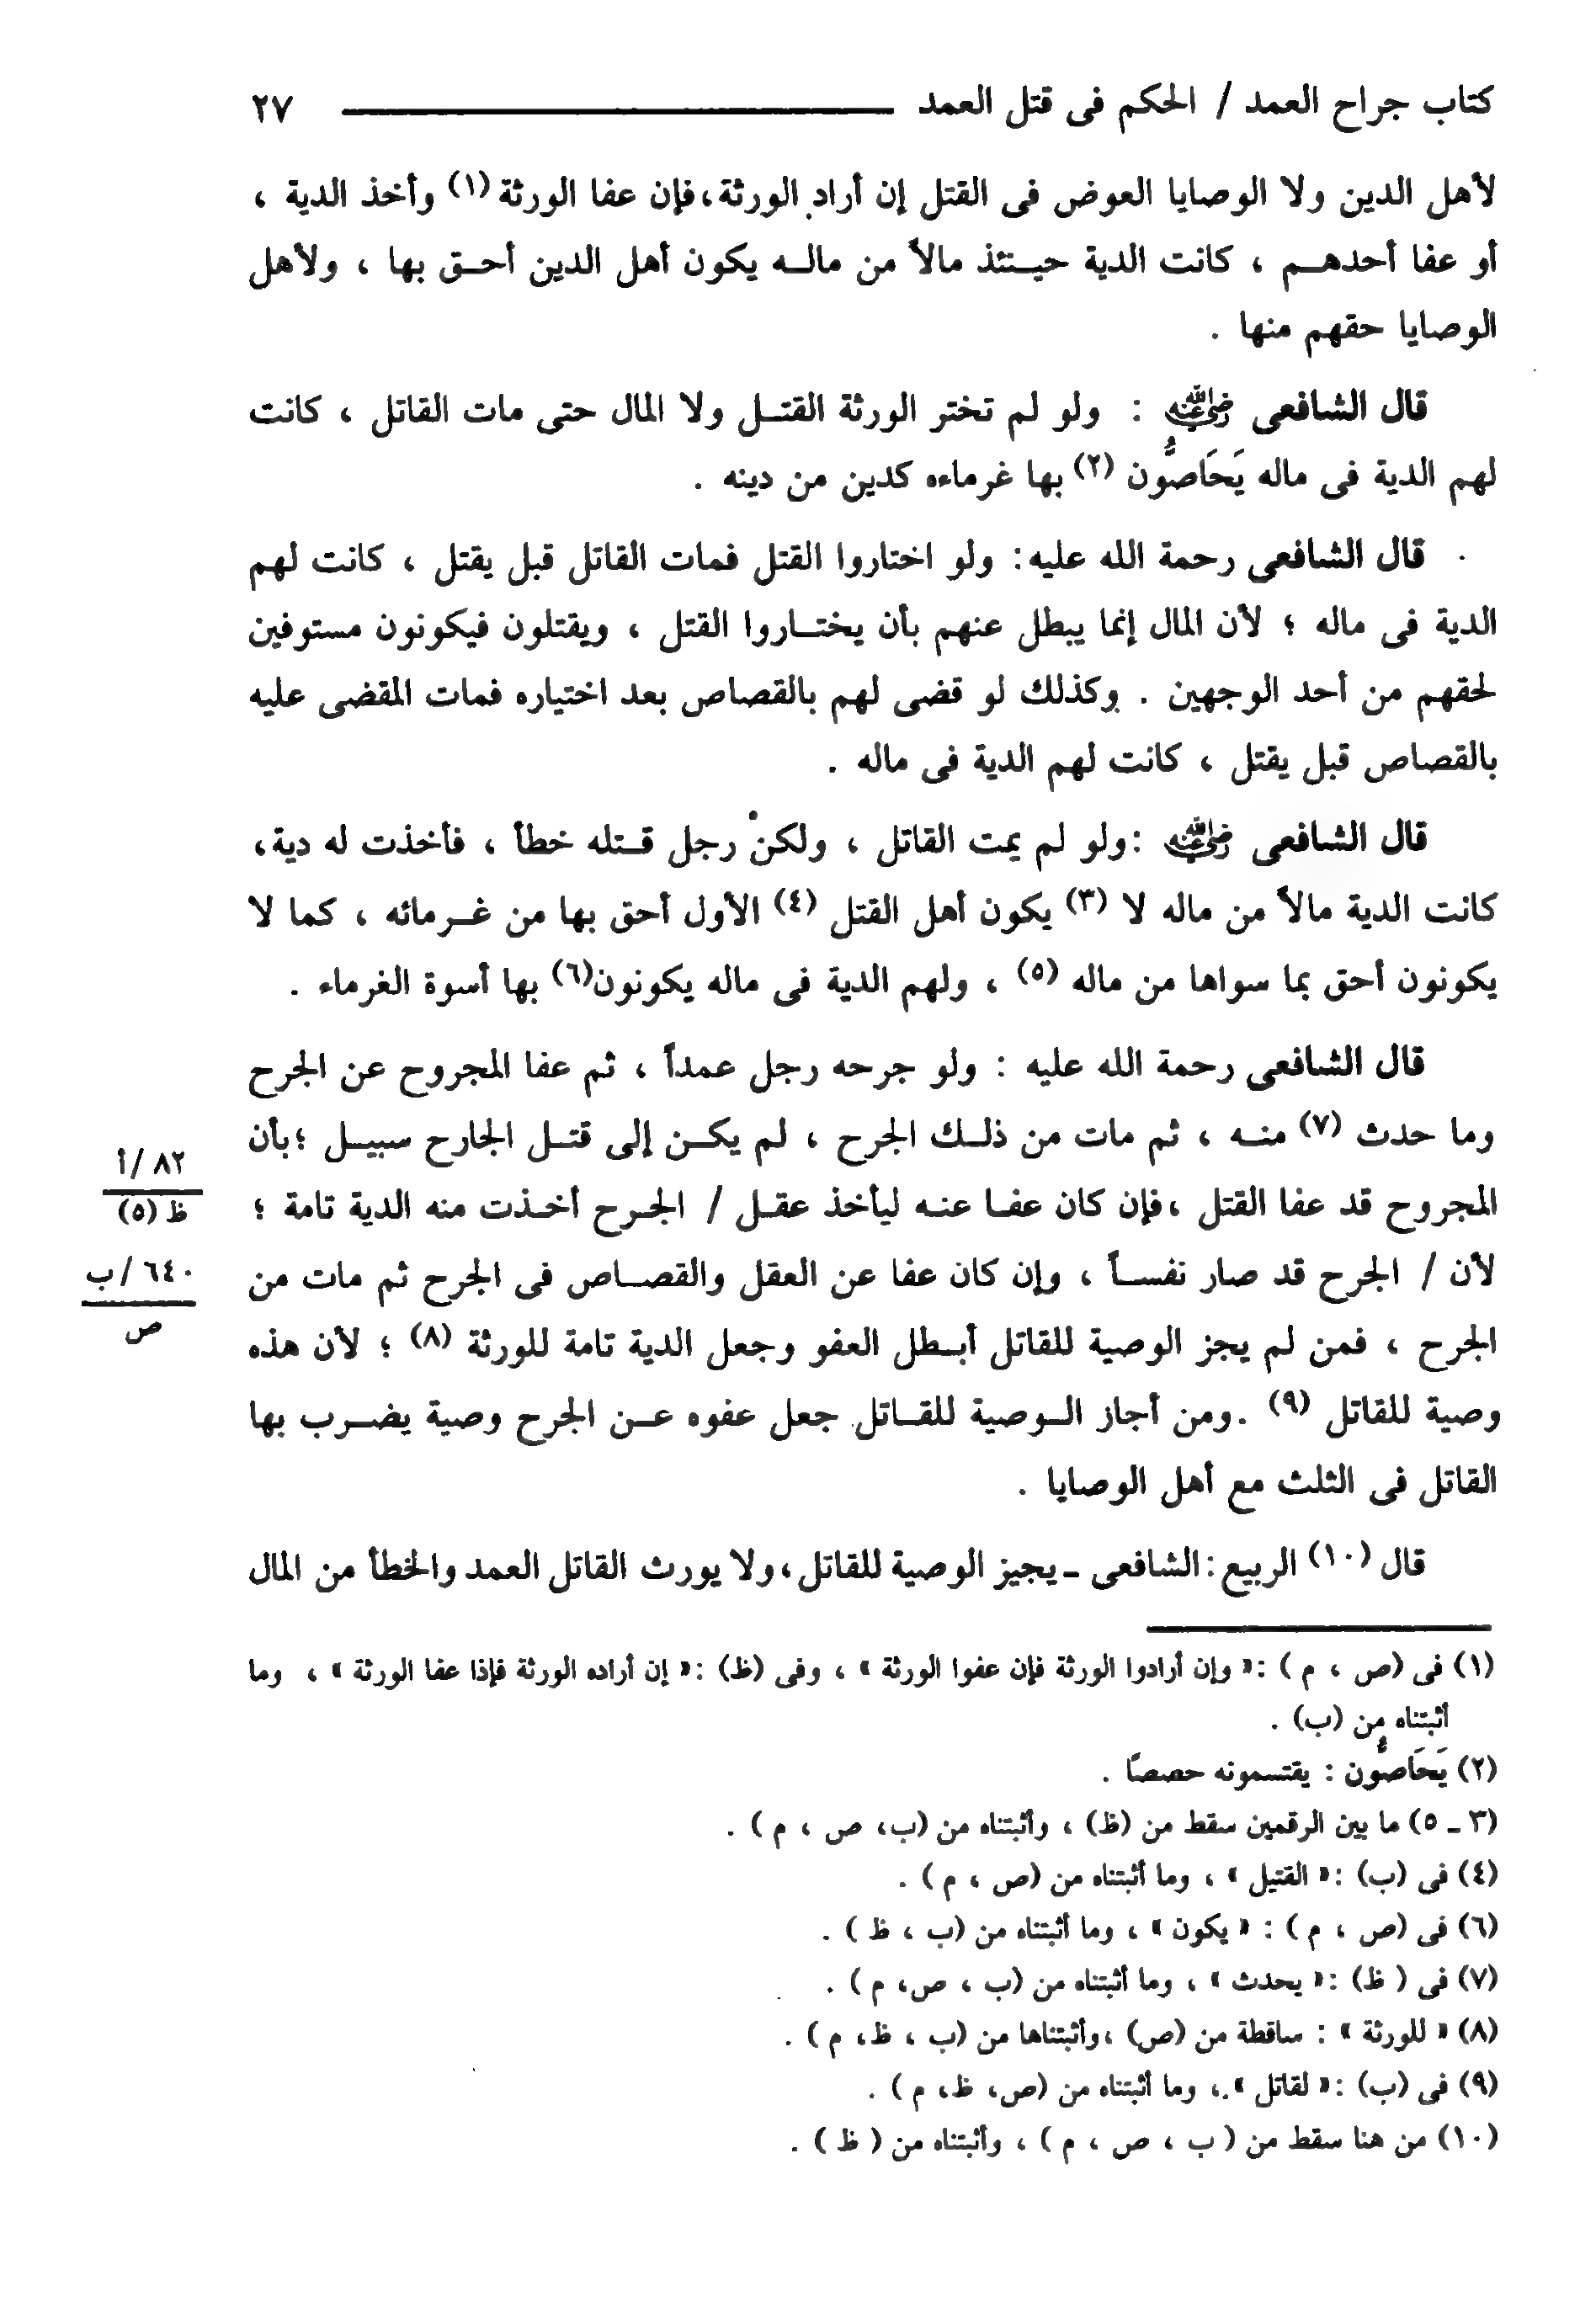 كتاب جراح العمد / الحكم فى قتل العمد ٢٧
لأهل الدين ولا الوصايا العوض فى القتل إن أراد الورثة، فإن عفا الورثة (١) وأخذ الدية ،
أو عفا أحدهـم ، كانت الدية حيـنئذ مالاً من مالـه يكون أهل الدين أحـق بها ، ولأهل
الوصايا حقهم منها .
قال الشافعى رضي الله عنه : ولو لم تختر الورثة القتـل ولا المال حتى مات القاتل ، كانت
لهم الدية فى ماله يَحَاصُّون (٢) بها غرماءه كدين من دينه .
قال الشافعى رحمة الله عليه: ولو اختاروا القتل فمات القاتل قبل يقتل ، كانت لهم
الدية فى ماله ؛ لأن المال إنما يبطل عنهم بأن يختـاروا القتل ، ويقتلون فيكونون مستوفين
لحقهم من أحد الوجهين . وكذلك لو قضى لهم بالقصاص بعد اختياره فمات المقضى عليه
بالقصاص قبل يقتل ، كانت لهم الدية فى ماله .
قال الشافعى رضي الله عنه :ولو لم يمت القاتل ، ولكنْ رجل قـتله خطأ ، فأخذت له دية،
كانت الدية مالاً من ماله لا (٣) يكون أهل القتل (٤) الأول أحق بها من غـرمائه ، كما لا
يكونون أحق بما سواها من ماله (٥) ، ولهم الدية فى ماله يكونون(٦) بها أسوة الغرماء .
قال الشافعى رحمة الله عليه : ولو جرحه رجل عمداً ، ثم عفا المجروح عن الجرح
وما حدث (٧) منـه ، ثم مات من ذلـك الجرح ، لم يكـن إلى قتـل الجارح سبيـل ؛بأن
المجروح قد عفا القتل ،فإن كان عفـا عنـه ليأخذ عقـل / الجـرح أخـذت منه الدية تامة ؛
٨٢ /أ
ظ (٥)
لأن / الجرح قد صار نفسـاً ، وإن كان عفا عن العقل والقصـاص فى الجرح ثم مات من
٦٤٠ /ب
ص
الجرح ، فمن لم يجز الوصية للقاتل أبـطل العفو وجعل الدية تامة للورثة (٨) ؛ لأن هذه
وصية للقاتل (٩) .ومن أجاز الـوصية للقـاتل جعل عفوه عـن الجرح وصية يضـرب بها
القاتل فى الثلث مع أهل الوصايا .
قال (١٠) الربيع: الشافعى ـ يجيز الوصية للقاتل، ولا يورث القاتل العمد والخطأ من المال
(١) فى (ص ، م ) :« وإن أرادوا الورثة فإن عفوا الورثة » ، وفى (ظ) :« إن أراده الورثة فإذا عفا الورثة » ، وما
أثبتناه من (ب) .
(٢) يَحَاصُّون : يقتسمونه حصصًا .
(٣ ـ ٥) ما بين الرقمين سقط من (ظ) ، وأثبتناه من (ب، ص ، م ) .
(٤) فى (ب) :« القتيل » ، وما أثبتناه من (ص ، م ) .
(٦) فى (ص ، م ) : « يكون » ، وما أثبتناه من (ب ، ظ ) .
(٧) فى ( ظ) :« يحدث » ، وما أثبتناه من (ب ، ص، م ) .
(٨) « للورثة » : ساقطة من (ص) ،وأثبتناها من (ب ، ظ، م ) .
(٩) فى (ب) :« لقاتل »، وما أثبتناه من (ص، ظ، م ) .
(١٠) من هنا سقط من ( ب ، ص ، م ) ، وأثبتناه من ( ظ ) .